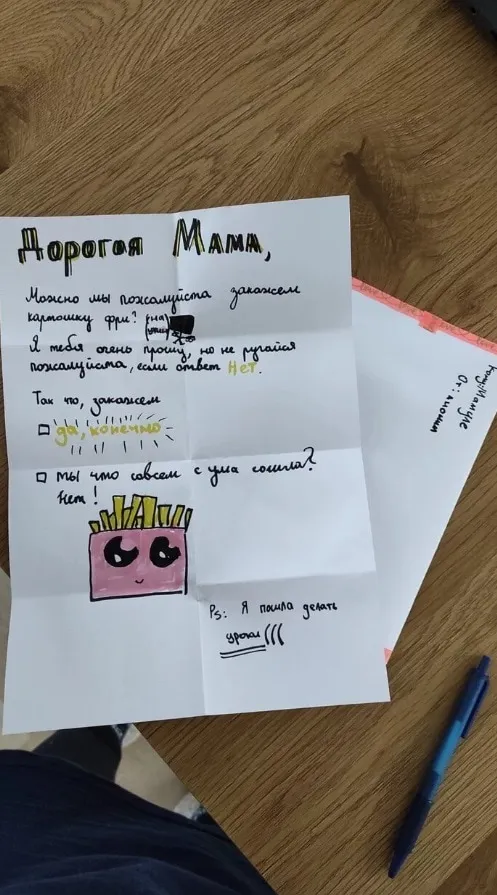 Дорогая Мама,
Можно мы пожалуйста закажем
картошку фри?
Я тебя очень прошу, но не ругайся
пожалуйста, если ответ Нет.
Так что, закажем
да, конечно
ты что совсем с ума сошла?
Нет!
Ps: Я пошла делать
уроки(((
Кому: Мамуле
От: